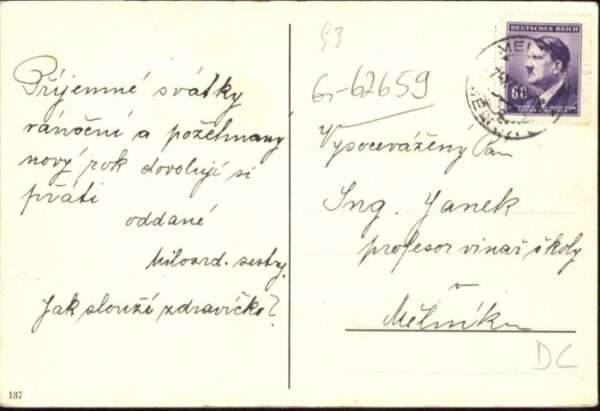 Příjemné svátky
vánoční a požehnaný
nový rok dovolují si
přáti
oddané
Milosrd. sestry.
Jak slouží zdravíčko?
187
93
G-62659
DEUTSCHES REICH
60
MĚL
Vysocevážený Pan
Ing. Janek
profesor vinař školy
v
Mělníku
DC